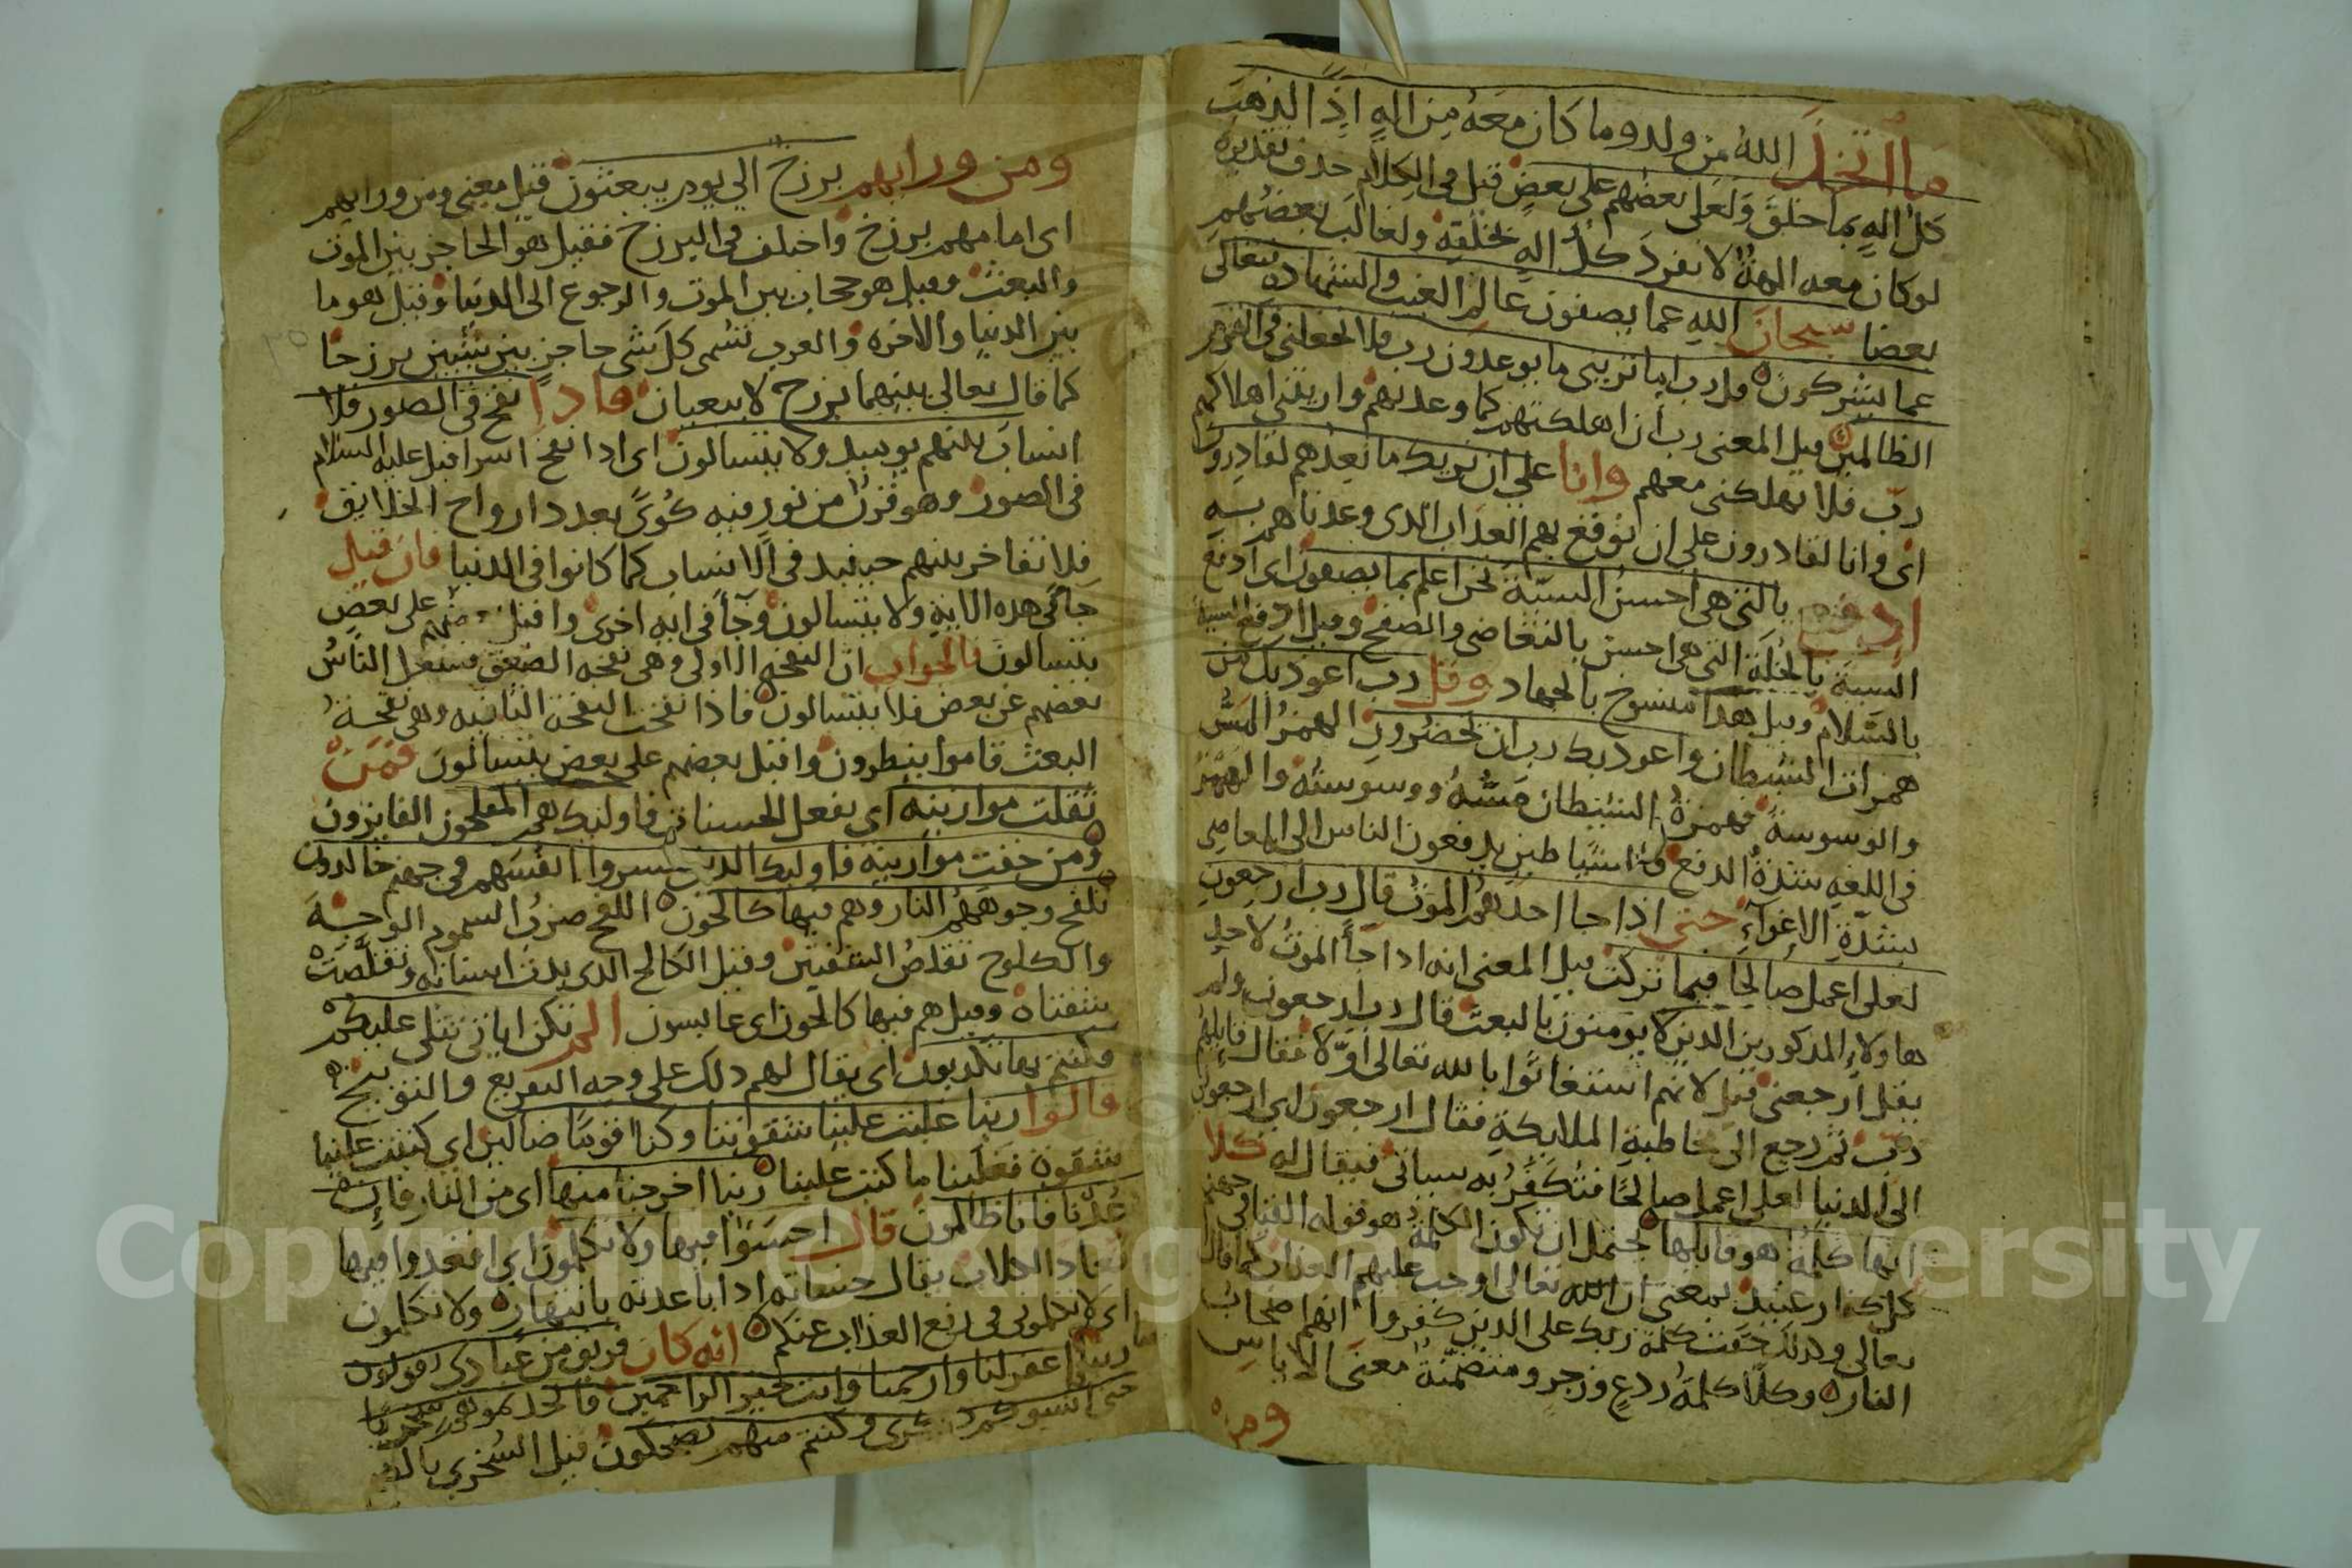 ما اتخذ الله من ولد وما كان معه من اله اذا لذهب
كل اله بما خلق ولعلى بعضهم على بعض قيل في الكلام حذف تقديره
لو كان معه الهة لانفرد كل اله بخلقه ولغالب بعضهم
بعضا سبحان الله عما يصفون عالم الغيب والشهادة فتعالى
عما يشركون قل رب اما تريني ما يوعدون رب فلا تجعلني في القوم
الظالمين قيل المعنى رب ان اهلكتهم كما وعدتهم واريتني اهلاكهم
رب فلا تهلكني معهم وانا على ان نريك ما نعدهم لقادرون
اى وانا لقادرون على ان نوقع بهم العذاب الذى وعدناهم به
ادفع بالتي هي احسن السيئة نحن اعلم بما يصفون اى ادفع
السيية بالخلة التي هي احسن بالتغاضى والصفح وقيل ادفع السيية
بالسلام وقيل هذا منسوخ بالجهاد وقل رب اعوذ بك من
همزات الشيطان واعوذ بك رب ان يحضرون الهمز المس
والوسوسة فهمزة الشيطان مسه ووسوسته والهمز
في اللغه شدة الدفع شياطين يدفعون الناس الى المعاصى
بشدة الاغوآء حتى اذا جا احدهم الموت قال رب ارجعون
لعلى اعمل صالحا فيما تركت قيل المعنى انه اذا جآ الموت لاحد
هاولاء المذكورين الذين لا يومنون بالبعث قال رب ارجعون ولم
يقل ارجعني قيل لانهم استغاثوا بالله تعالى اولا فقال قايلهم
رب ثم رجع الى مخاطبة الملايكة فقال ارجعون اى ارجعون
الى الدنيا لعلى اعمل صالحا فتكفر به سياتى فيقال له كلا
انها كلمة هو قايلها يحتمل ان تكون الكلمة هو قوله القيا في جهنم
كل كفار عنيد بمعنى ان الله تعالى اوجب عليهم العذاب كما قال
تعالى وكذلك حقت كلمة ربك على الذين كفروا انهم اصحاب
النار وكلا كلمة ردع وزجر ومتضمنة معنى الاياس
ومن
ومن ورايهم برزخ الي يوم يبعثون قيل معنى ومن ورايهم
اى امامهم برزخ واختلف في البرزخ فقيل هو الحاجز بين الموت
والبعث وقيل هو حجاب بين الموت والرجوع الى الدنيا وقيل هو ما
بين الدنيا والاخره والعرب تسمى كل شى حاجز بين شيين برزخا
كما قال تعالى بينهما برزخ لا يبغيان فاذا نفخ في الصور فلا
انساب بينهم يوميذ ولا يتسالون اى اذا نفخ اسرافيل عليه السلام
في الصور وهو قرن من نور فيه كوى بعدد ارواح الخلايق
فلا تفاخر بينهم حينيذ في الانساب كما كانوا في الدنيا فان قيل
جا في هذه الاية ولا يتسالون وجآ في ايه اخرى واقبل بعضهم على بعض
يتسالون فالجواب ان النفخه الاولى وهي نفخه الصعق يشغل الناس
بعضهم عن بعض فلا يتسالون فاذا نفخت النفخة الثانيه وهى نفخة
البعث قاموا ينظرون واقبل بعضهم على بعض يتسالون فمن
ثقلت موازينه اى بفعل الحسنات فاوليك هم المفلحون الفايزون
ومن خفت موازينه فاوليك الذين خسروا انفسهم في جهنم خالدون
تلفح وجوههم النار وهم فيها كالحون اللفح ضرب السموم الوجه
والكلوح تقلص الشفتين وقيل الكالح الذى بدت اسنانه وتقلصت
شفتاه وقيل هم فيها كالحون اى عابسون الم تكن اياتى تتلى عليكم
فكنتم بها تكذبون اى يقال لهم ذلك على وجه التقريع والتوبيخ
قالوا ربنا غلبت علينا شقوتنا وكنا قوما ضالين اى كتبت علينا
شقوة فغلبنا ما كتبت علينا ربنا اخرجنا منها اى من النار فان
عدنا فانا ظالمون قال اخسئوا فيها ولا تكلمون اى ابعدوا فيها
ابعاد الكلاب يقال خساته اذا باعدته بانتهار ولا تكلمون
اى لا تكلموني في رفع العذاب عنكم انه كان فريق من عبادى يقولون
ربنا اغفر لنا وارحمنا وانت خير الراحمين فاتخذتموهم سخريا
حتى انسوكم ذكرى وكنتم منهم تضحكون قيل السخرى